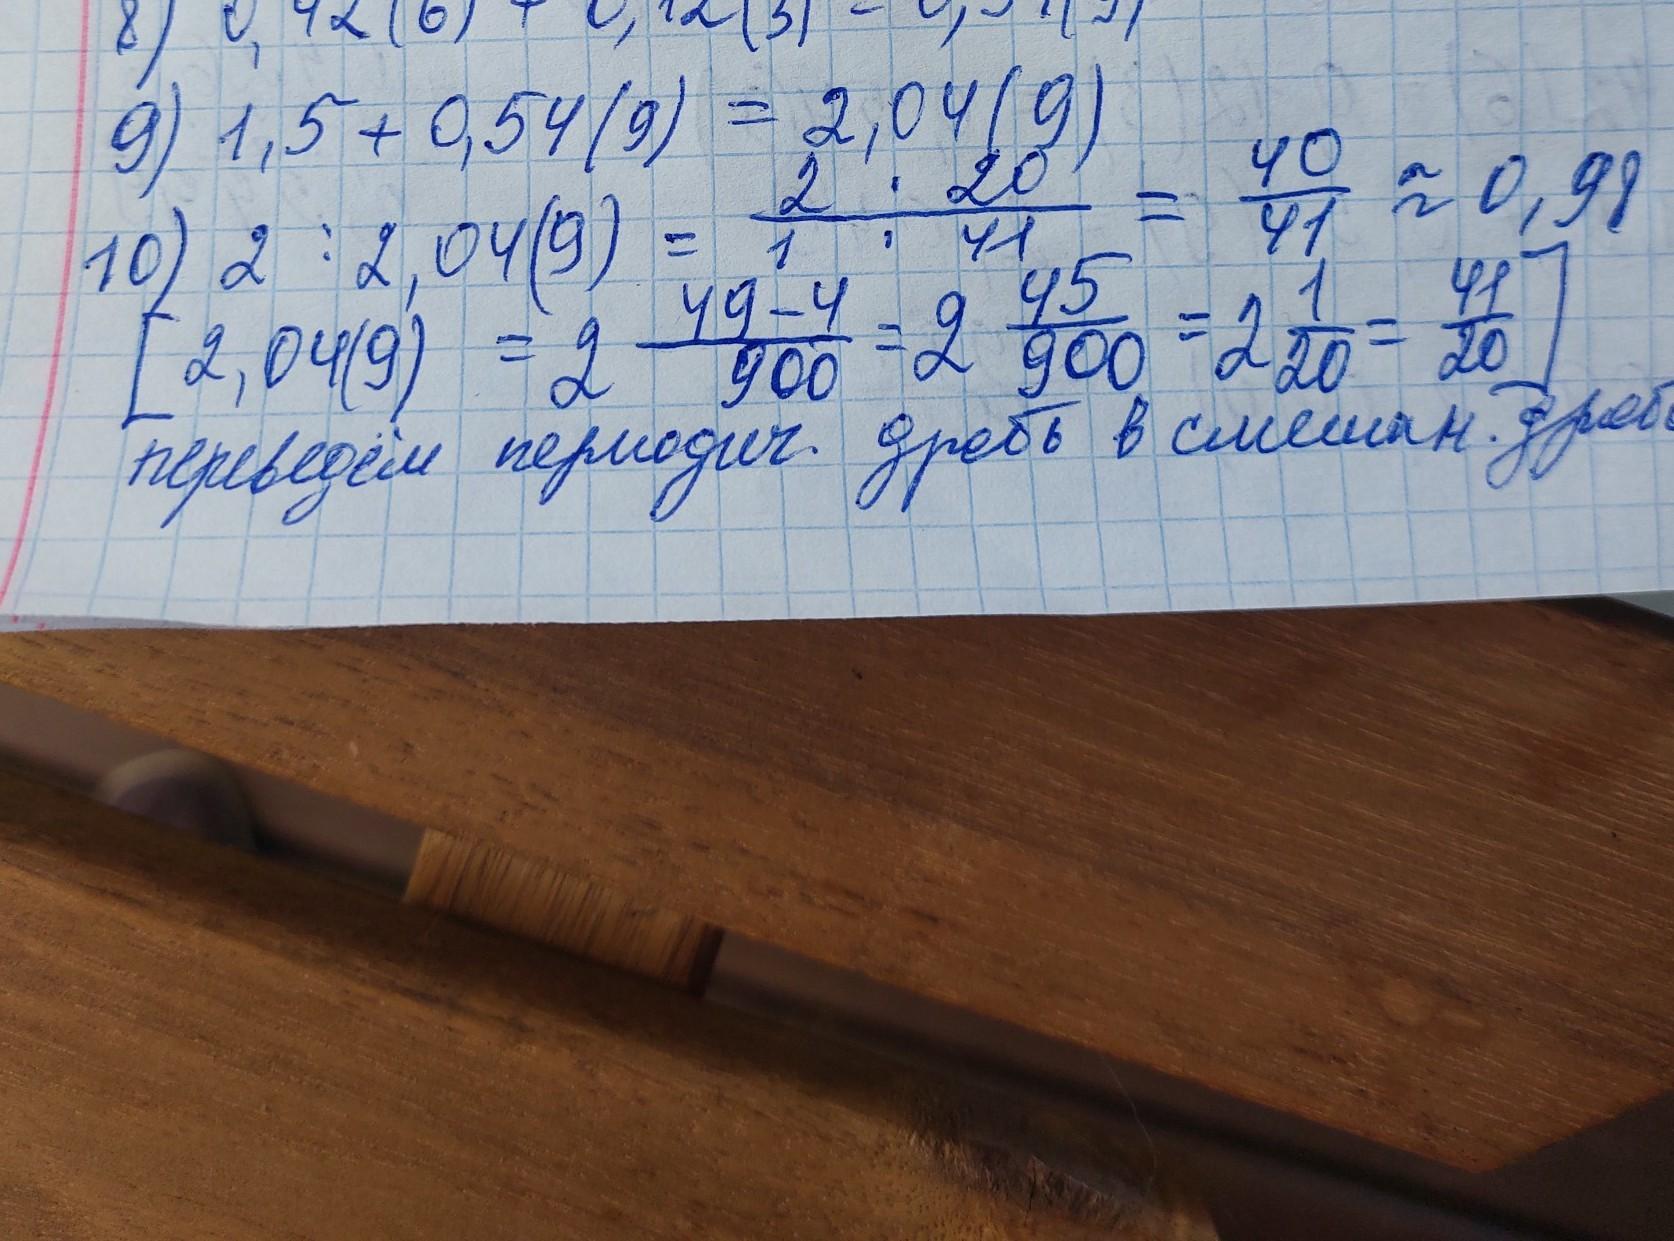 8) 0,42(6) + 0,12(3) = 0,54(9)
9) 1,5 + 0,54(9) = 2,04(9)
10) 2 : 2,04(9) = 2 · 20 / 1 · 41 = 40/41 ≈ 0,98
[2,04(9) = 2 49-4/900 = 2 45/900 = 2 1/20 = 41/20]
переведём периодич. дробь в смешан. дробь